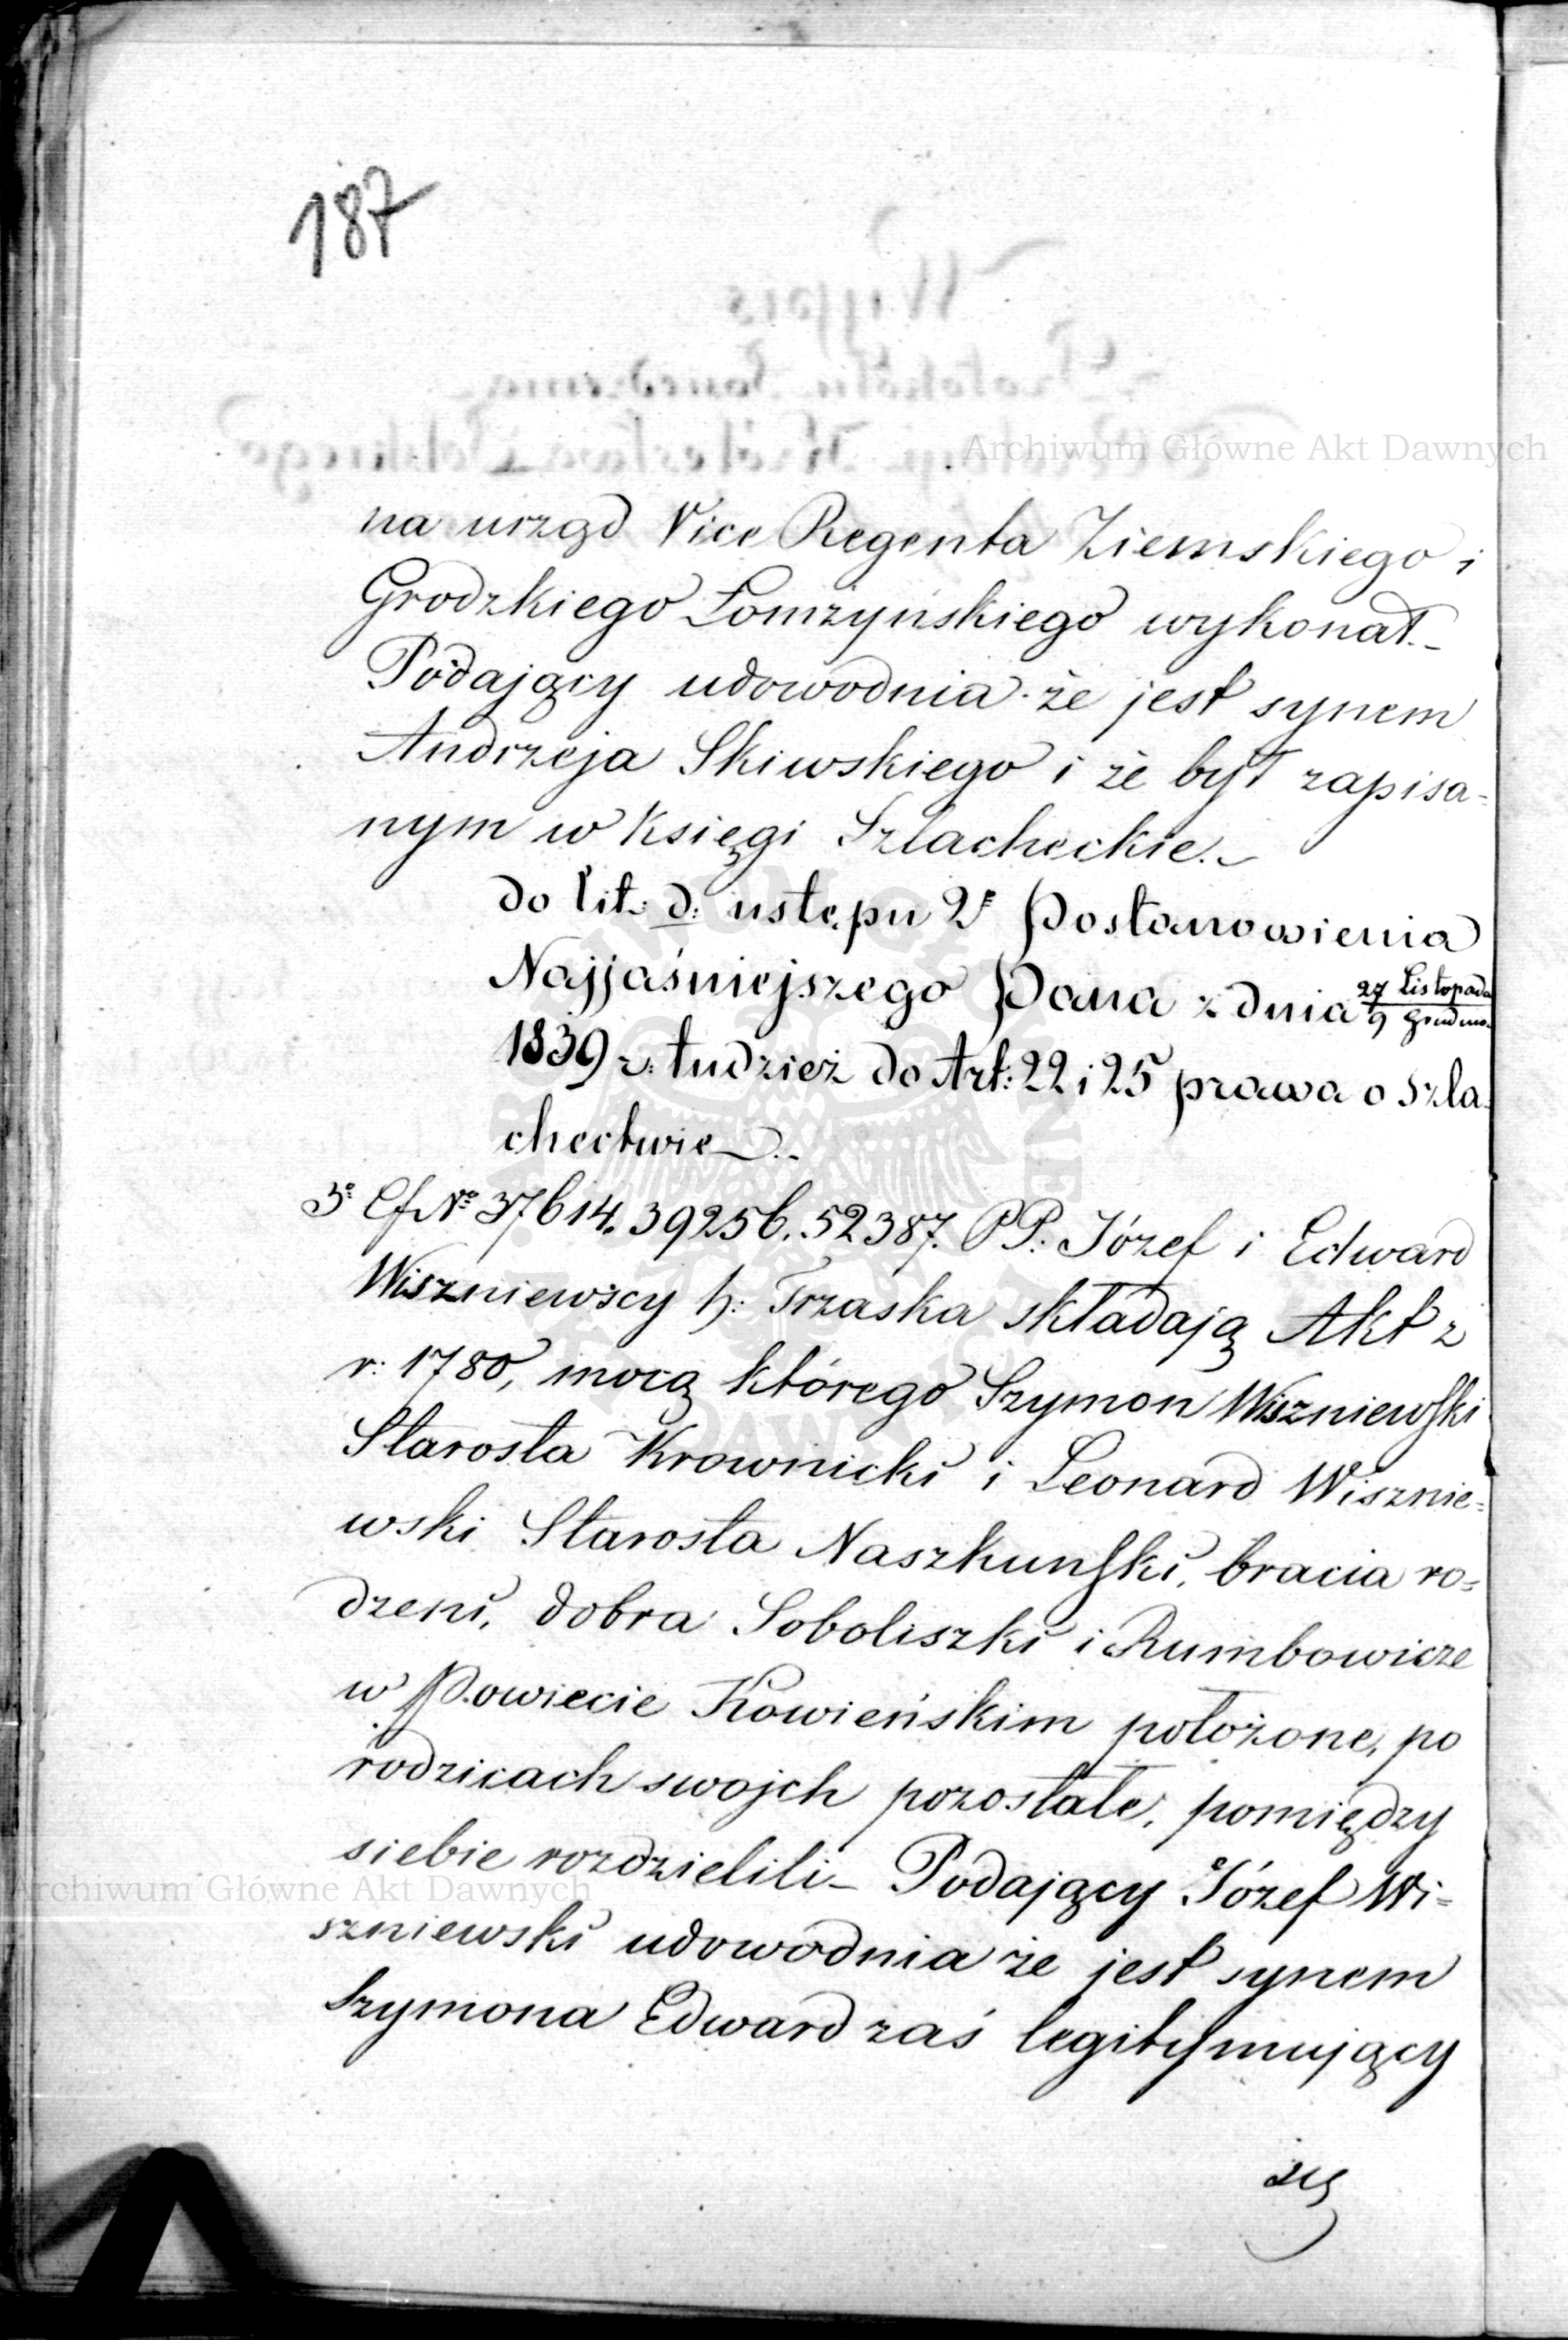 187
Archiwum Główne Akt Dawnych
na urząd Vice Regenta Ziemskiego i
Grodzkiego Łomżyńskiego wykonał._
Podający udowodnia że jest synem
Andrzeja Skiwskiego i że był zapisa=
nym w Księgi Szlacheckie._
do lit: d: ustępu 2º Postanowienia
Najjaśniejszego Pana z dnia 27 Listopada / 9 Grudnia
1839 r: tudzież do Art: 22 i 25 prawa o Szla=
chectwie_.
3º Cf Nº 37614. 39256. 52387. PP. Józef i Edward
Wiszniewscy h: Trzaska składają Akt z
r: 1780, mocą którego Szymon Wiszniewski
Starosta Krownicki i Leonard Wisznie=
wski Starosta Naszkunski, bracia ro=
dzeni, dobra Soboliszki i Rumbowicze
w Powiecie Kowieńskim położone, po
rodzicach swojch pozostałe, pomiędzy
siebie rozdzielili_ Podający Józef Wi=
Archiwum Główne Akt Dawnych
szniewski udowodnia że jest synem
Szymona Edward zaś legitymujący
się